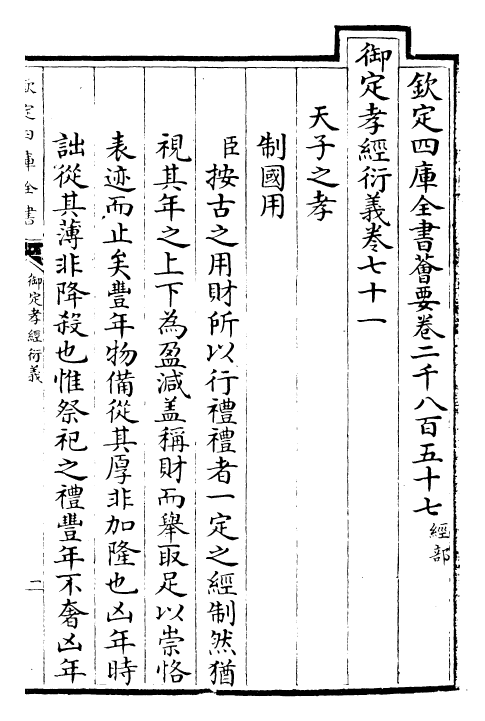 欽定四庫全書薈要卷二千八百五十七經部
御定孝經衍義卷七十一
天子之孝
制國用
臣按古之用財所以行禮禮者一定之經制然猶
視其年之上下為盈減蓋稱財而舉取足以崇恪
表迹而止矣豐年物備從其厚非加隆也凶年時
詘從其薄非降殺也惟祭祀之禮豐年不奢凶年
欽定四庫全書
御定孝經衍義